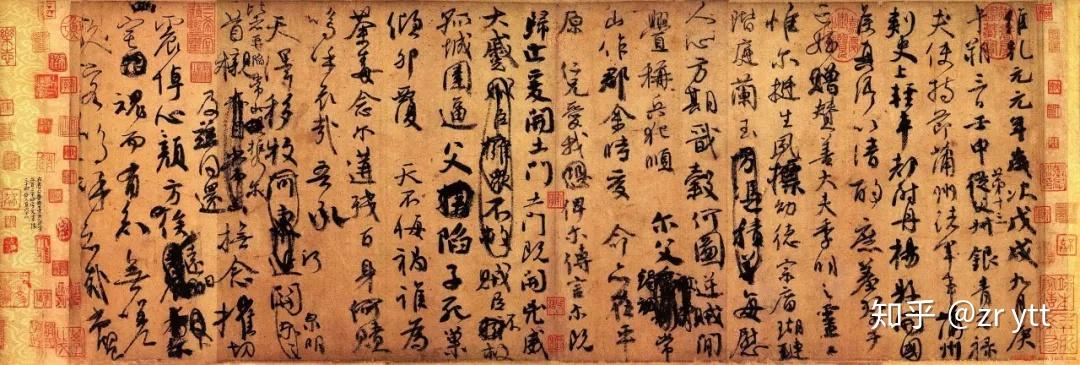 維乾元元年歲次戊戌九月庚
午朔三日壬申第十三叔銀青光祿
夫使持節蒲州諸軍事蒲州
刺史上輕車都尉丹楊縣開國
侯真卿以清酌庶羞祭于
亡姪贈贊善大夫季明之靈曰
惟爾挺生夙標幼德宗廟瑚璉
階庭蘭玉方憑積善每慰
人心方期戩穀何圖逆賊閒
釁稱兵犯順爾父竭誠常
山作郡余時受命亦在平
原仁兄愛我恐俾爾傳言爾既
歸止爰開土門土門既開凶威
大蹙賊臣擁眾不救賊臣不救
孤城圍逼父陷子死巢
傾卵覆天不悔禍誰為
荼毒念爾遘殘百身何贖
嗚乎哀哉吾承
天澤移牧河關泉明
比者再陷常山攜爾
首櫬及茲同還撫念摧切
震悼心顏方俟遠日
宅魂而有知無嗟
久客嗚呼哀哉尚饗
知乎 @zr ytt